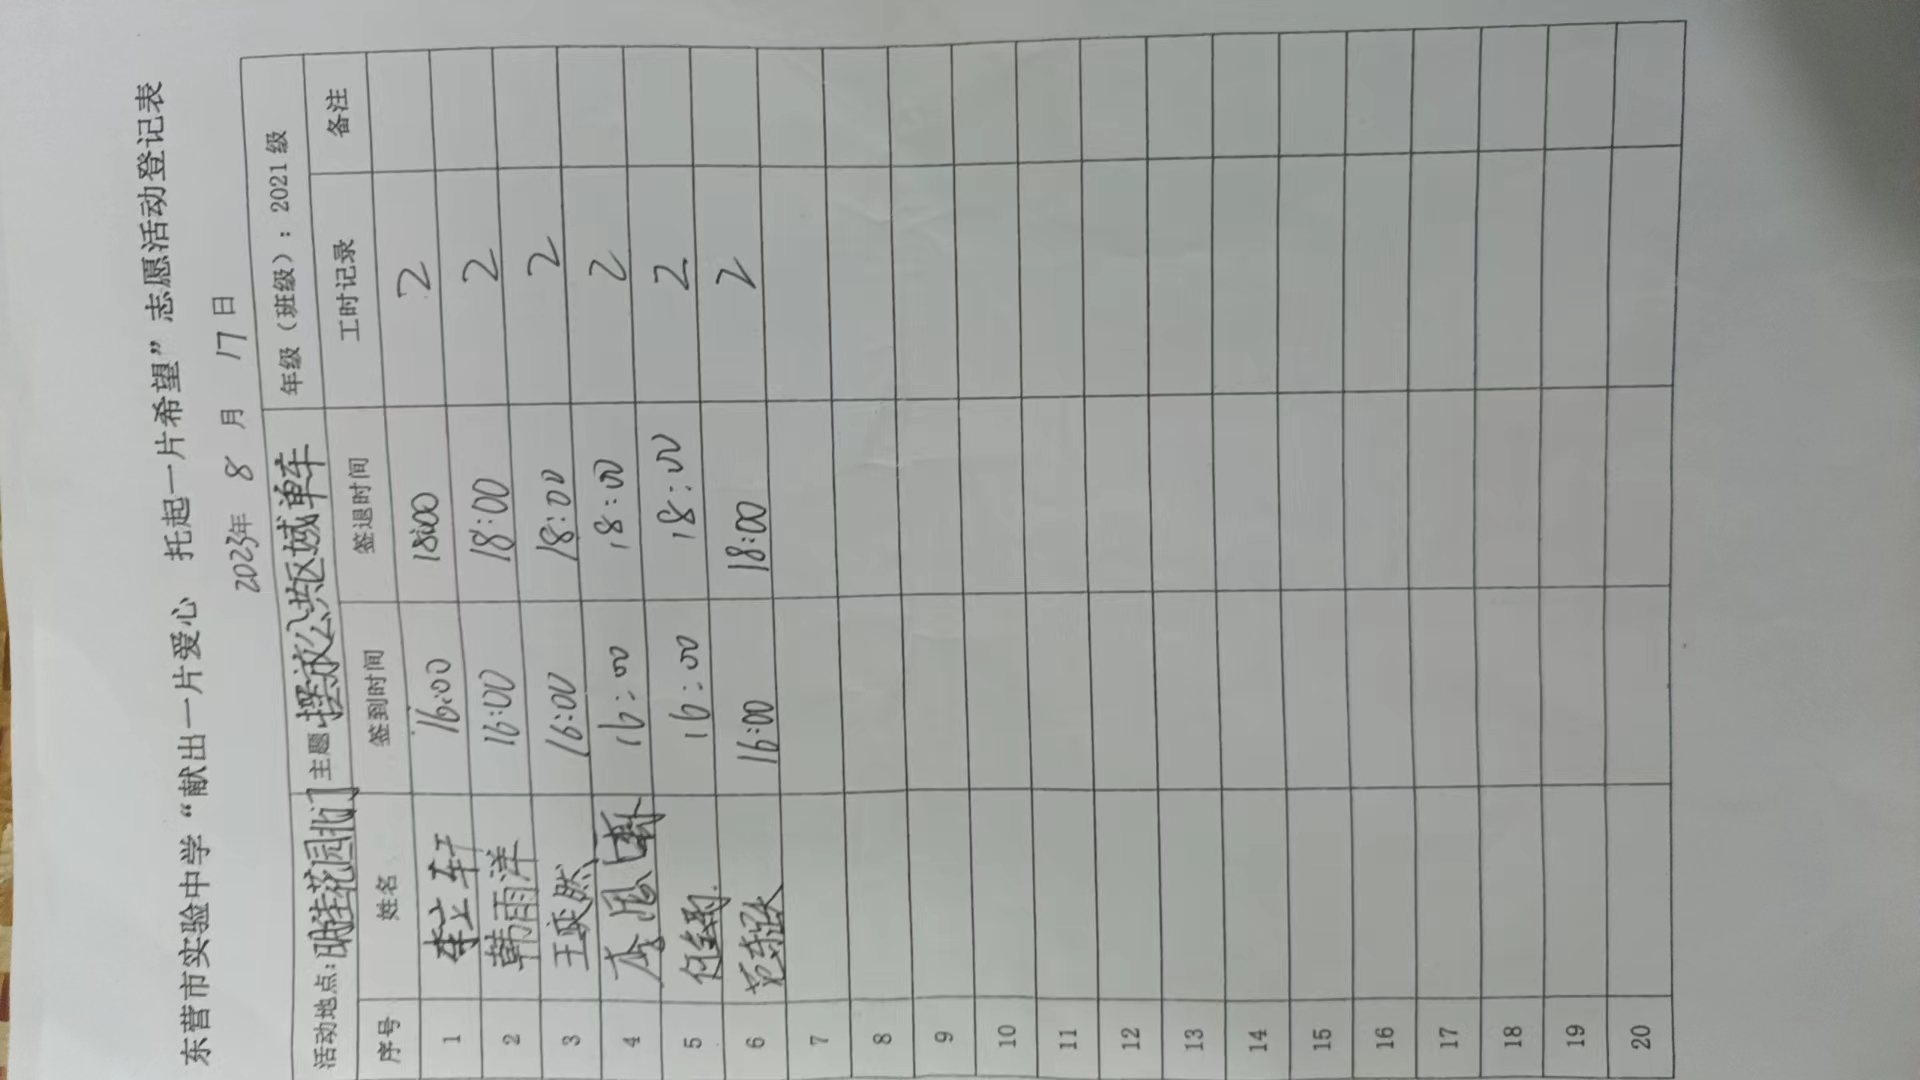 东营市实验中学“献出一片爱心 托起一片希望”志愿活动登记表
2023年 8 月 17 日
活动地点:明佳花园北门 主题 摆放公共区域单车 年级（班级）: 2021 级
序号 姓名 签到时间 签退时间 工时记录 备注
1 李立轩 16:00 18:00 2
2 韩雨洋 16:00 18:00 2
3 王奕然 16:00 18:00 2
4 16:00 18:00 2
5 16:00 18:00 2
6 16:00 18:00 2
7
8
9
10
11
12
13
14
15
16
17
18
19
20